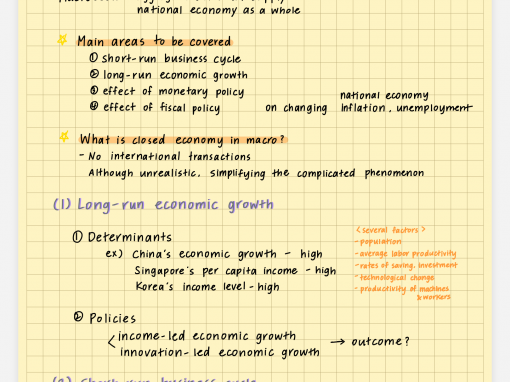 national economy as a whole
Main areas to be covered
① short-run business cycle
② long-run economic growth
③ effect of monetary policy
④ effect of fiscal policy
on changing
national economy
inflation, unemployment
What is closed economy in macro?
- No international transactions
Although unrealistic, simplifying the complicated phenomenon
(1) Long-run economic growth
① Determinants
ex) China's economic growth - high
Singapore's per capita income - high
Korea's income level - high
<several factors>
- population
- average labor productivity
- rates of saving, investment
- technological change
- productivity of machines
& workers
② Policies
income-led economic growth
innovation-led economic growth
→ outcome?
(2) Short-run business cycle